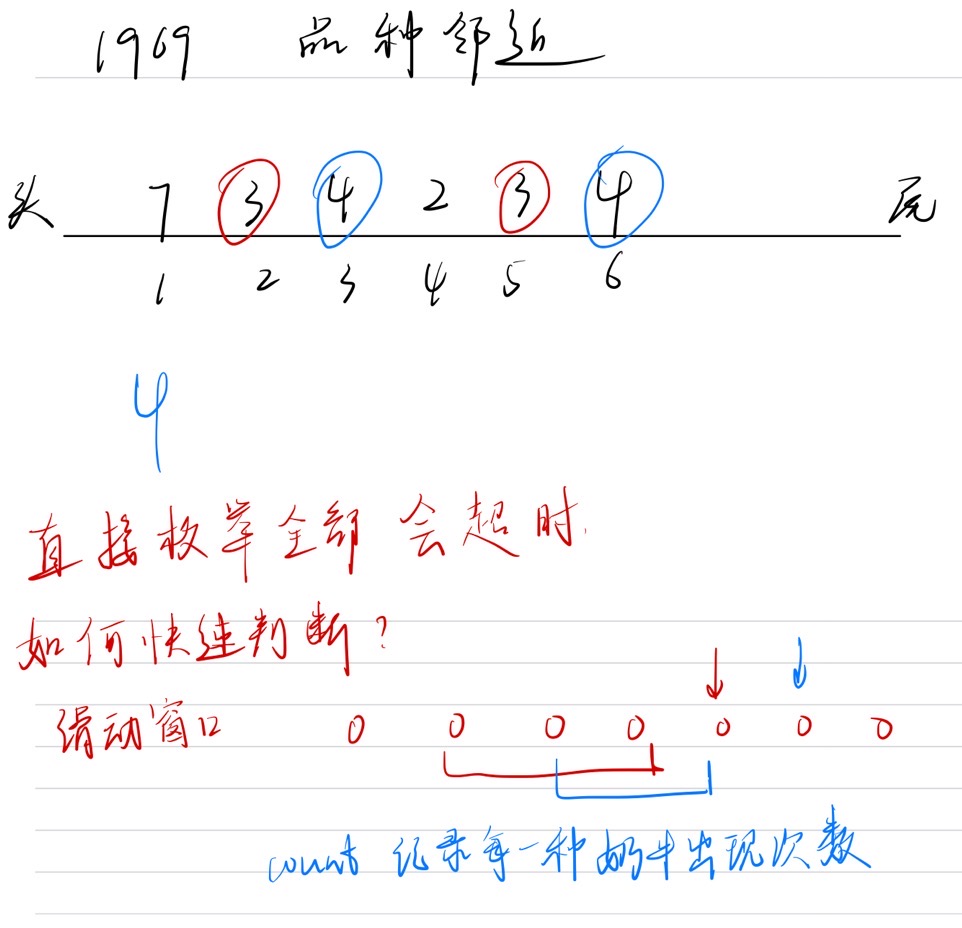 1969 品种邻近
头 7 3 4 2 3 4 尾
1 2 3 4 5 6
4
直接枚举全部会超时.
如何快速判断?
滑动窗口 0 0 0 0 0 0 0
count 记录每一种奶牛出现次数